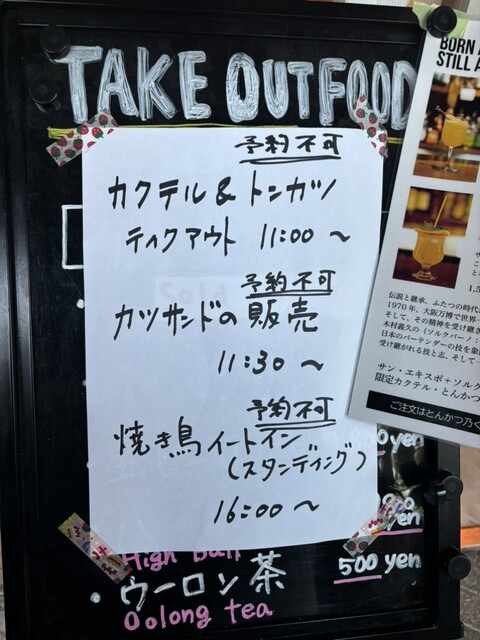 TAKE OUTFOOD
予約不可
カクテル & トンカツ
テイクアウト 11:00 ~
予約不可
カツサンドの販売
11:30 ~
予約不可
焼き鳥 イートイン
(スタンディング)
16:00 ~
yen
yen
High Ball
・ウーロン茶 500 yen
Oolong tea
BORN
STILL A
伝説と継承、ふたつの時代
1970年、大阪万博で世界
そして、その精神を受け継ぎ
木村義久の〈ソルクバーノ:
日本のバーテンダーの技を象
受け継がれる技と志、そして
サン・エキスポ+ソルク
限定カクテル・とんかつ
ご注文はとんかつ乃ぐ